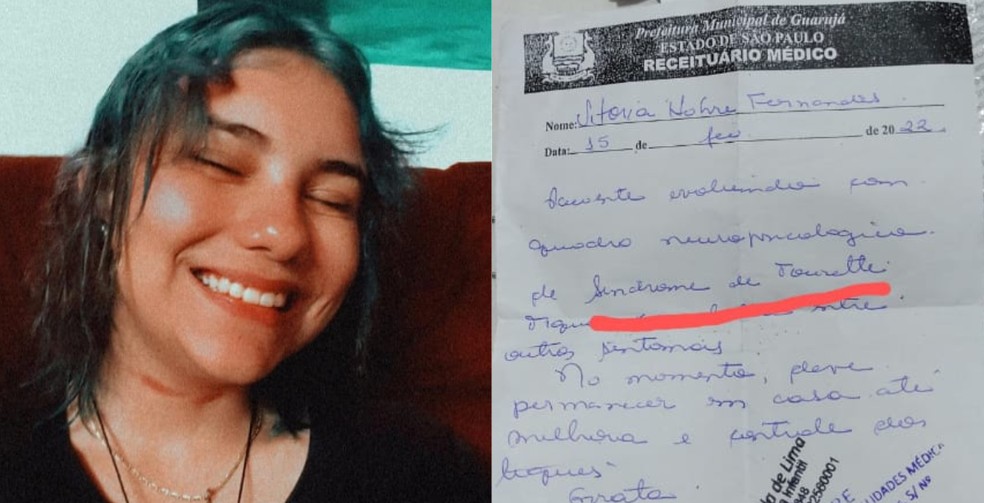 Prefeitura Municipal de Guarujá
ESTADO DE SÃO PAULO
RECEITUÁRIO MÉDICO
Nome: Vitória Nobre Fernandes
Data: 15 de fev de 2022
Paciente evoluindo com
quadro neuropsicologico
de Sindrome de Tourette
entre
outros sintomas
No momento, deve
permanecer em casa até
melhora e controle dos
tiques
Grata
de Lima